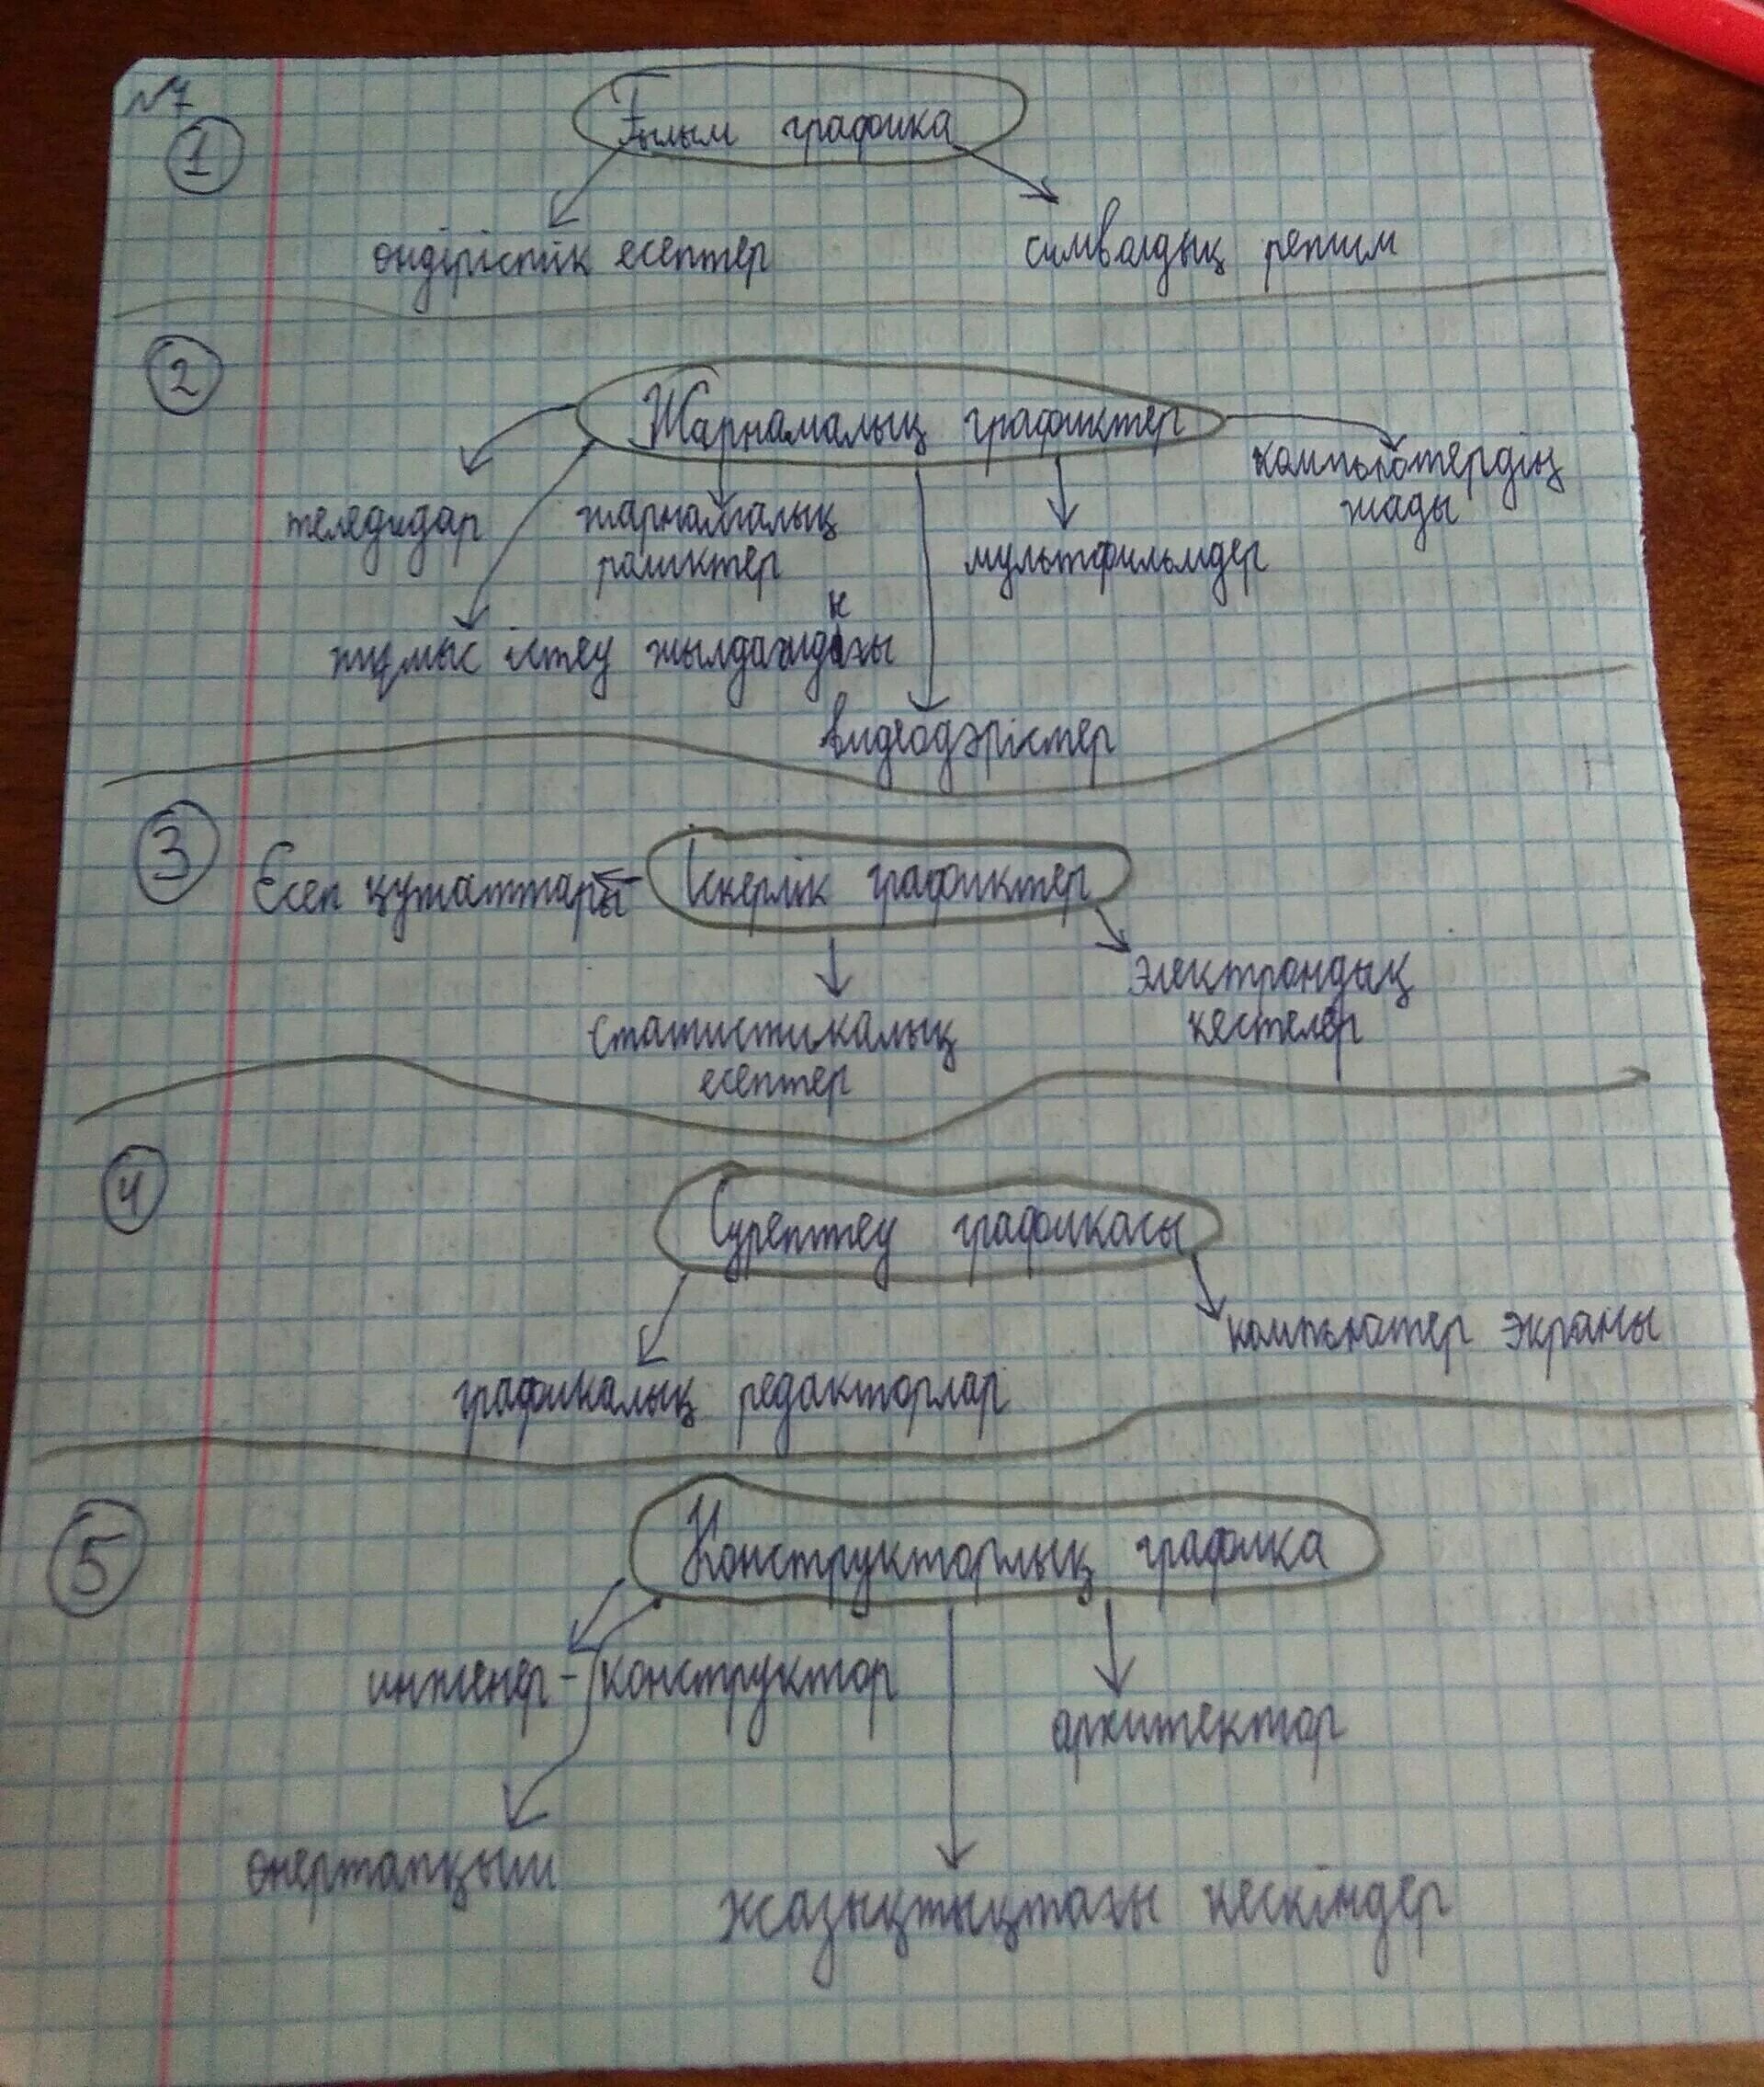 №7
1
Ғылым графика
өндірістік есептер
символдық режим
2
Жарнамалық графиктер
компьютердің
жады
теледидар
жарнамалық
роликтер
мультфильмдер
жұмыс істеу
видеодәрістер
3
Есеп құжаттары
Іскерлік графиктер
электрондық
кестелер
статистикалық
есептер
4
Суреттеу графикасы
компьютер экраны
графикалық редакторлар
5
Конструкторлық графика
инженер-конструктор
архитектор
өнертапқыш
жазықтықтағы кескіндер